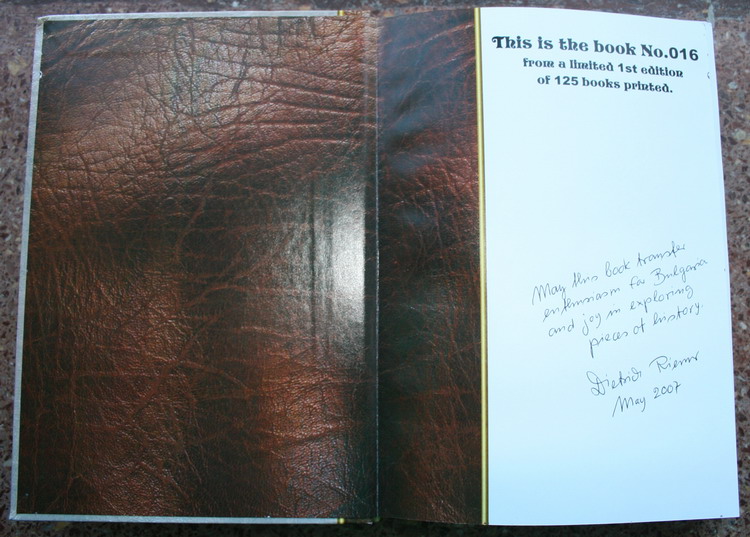 This is the book No.016
from a limited 1st edition
of 125 books printed.
May this book transfer
enthusiasm for Bulgaria
and joy in exploring
pieces of history.
Dietrich
May 2007